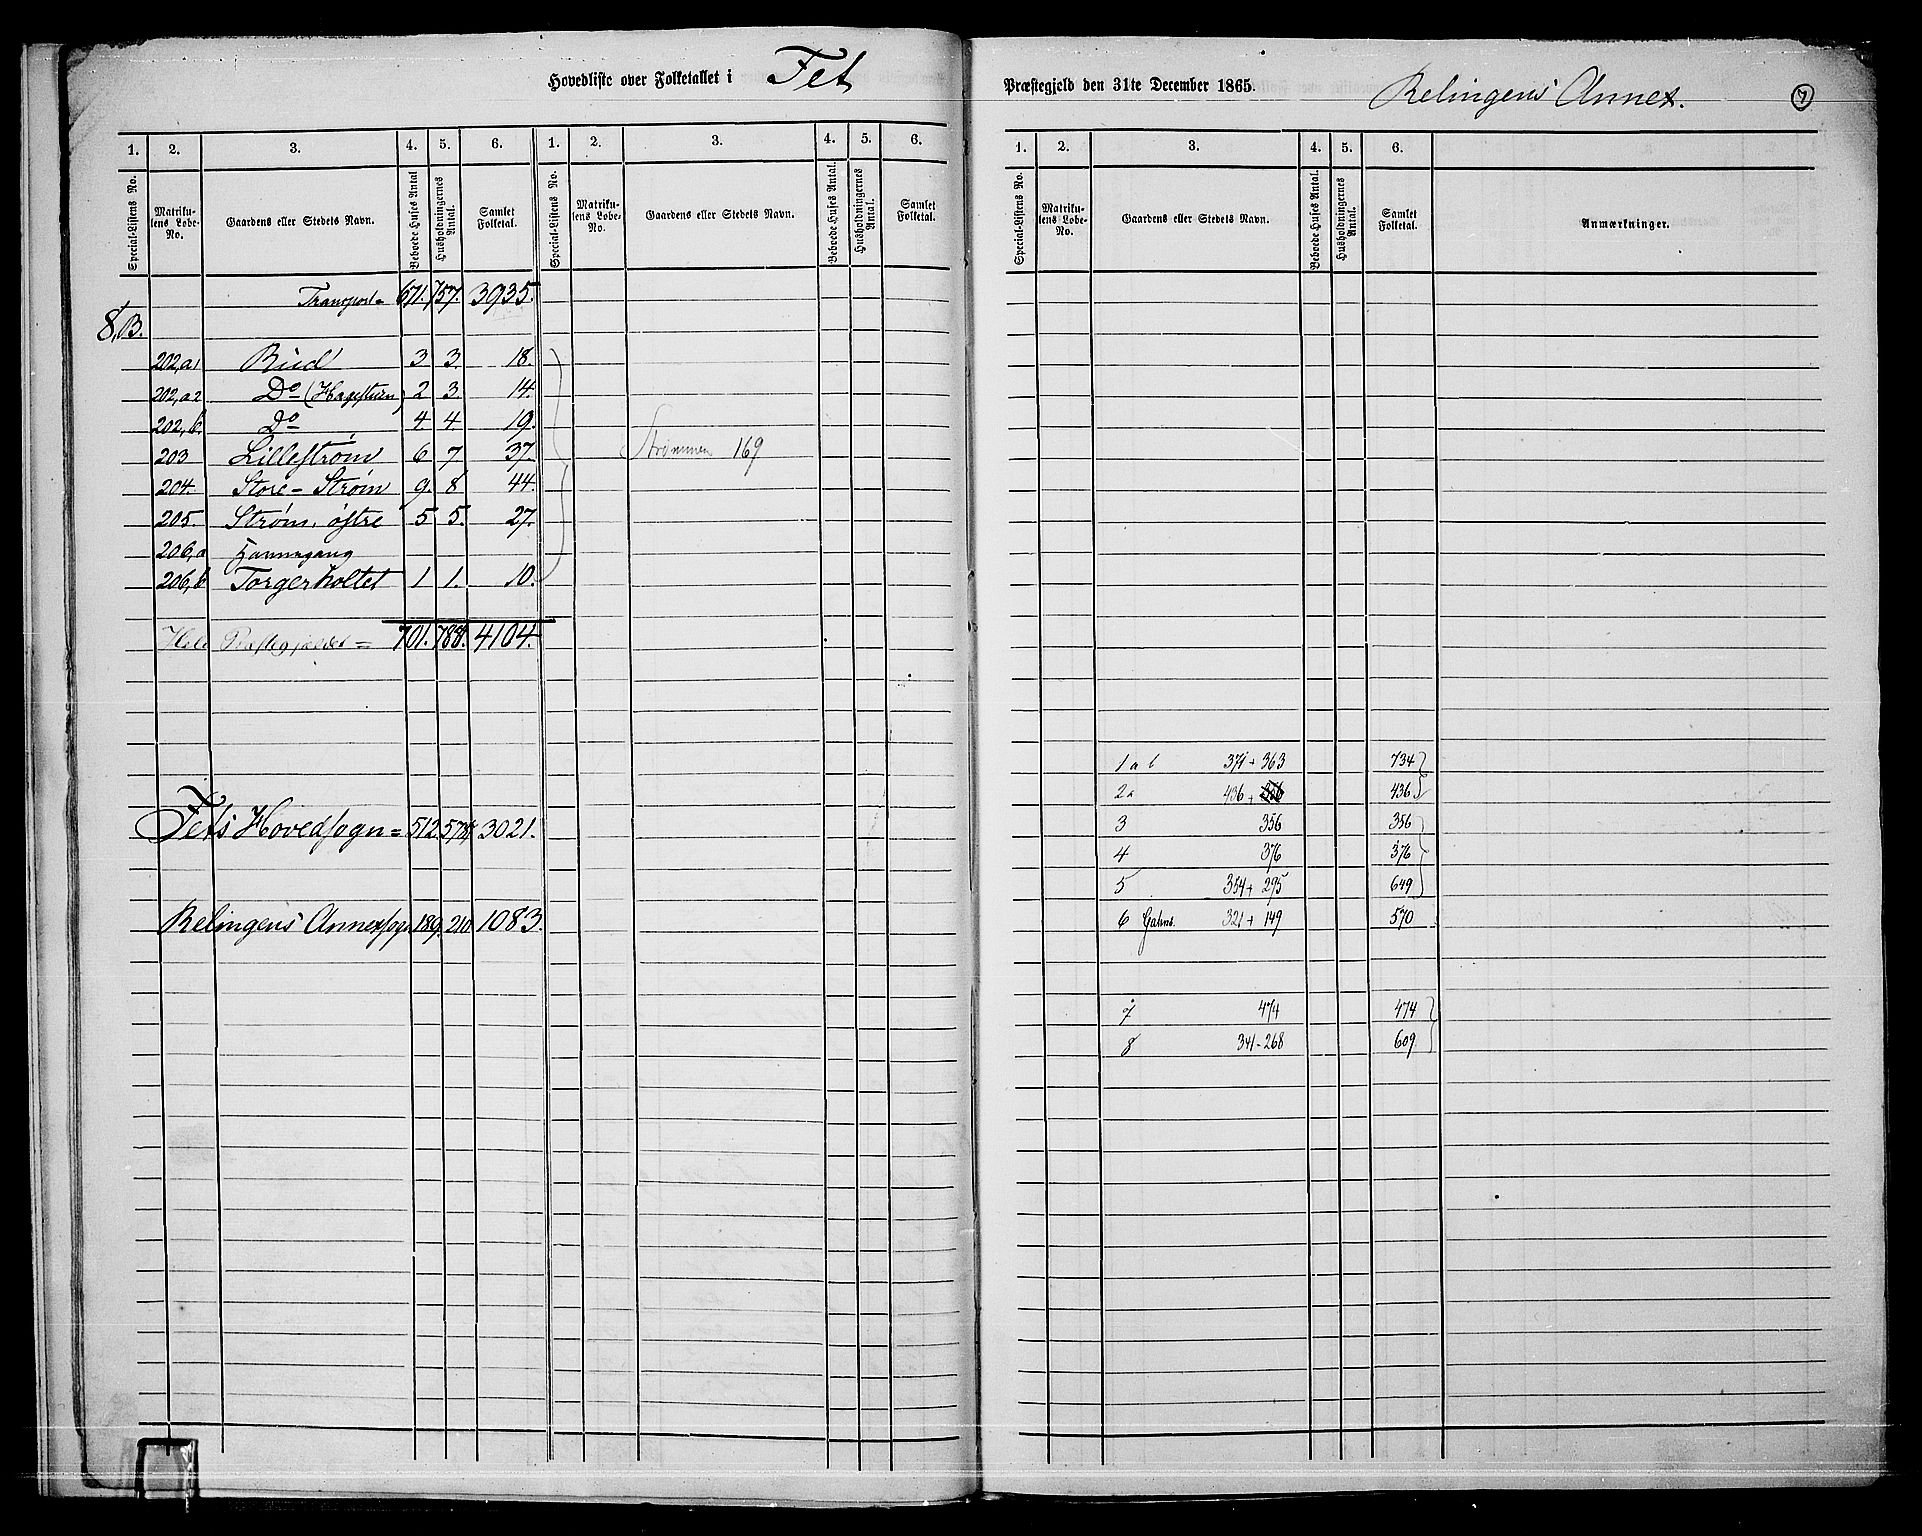 Hovedliste over Folketallet i Fet
1. 2. 3. 4. 5. 6. 1. 2. 3. 4. 5. 6.
Special-Listens No. Matrikulens Løbe-No. Gaardens eller Stedets Navn. Beboede Huses Antal Husholdningernes Antal. Samlet Folketal. Special-Listens No. Matrikulens Løbe-No. Gaardens eller Stedets Navn. Beboede Huses Antal. Husholdningernes Antal. Samlet Folketal.
Transport = 671. 757. 3935.
8, B.
202,a1 Rud 3 3. 18.
202,a2 Do (Hagestuen) 2 3. 14.
202,b. Do 4 4 19.
203 Lillestrøm 6 7 37.
Strømmen 169
204. Store-Strøm 9. 8 44.
205. Strøm, østre 5 5. 27.
206,a Havnegang
206,b Torgerholtet 1 1. 10.
Hele Præstegjeldet = 701. 788. 4104.
Fets Hovedsogn = 512. 578. 3021.
Relingens Annexsogn 189. 210. 1083.
Præstegjeld den 31te December 1865. Relingens Annex. 7
1. 2. 3. 4. 5. 6.
Special-Listens No. Matrikulens Løbe-No. Gaardens eller Stedets Navn. Beboede Huses Antal. Husholdningernes Antal. Samlet Folketal. Anmærkninger.
1 a b 371 + 363 734
2a 436 + 436
3 356 356
4 376 376
5 354 + 295 649
6 321 + 149 570
7 474 474
8 341 - 268 609.